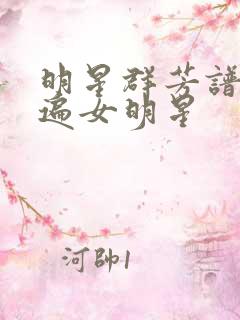 明星群芳譜
遍女明星
河帥1